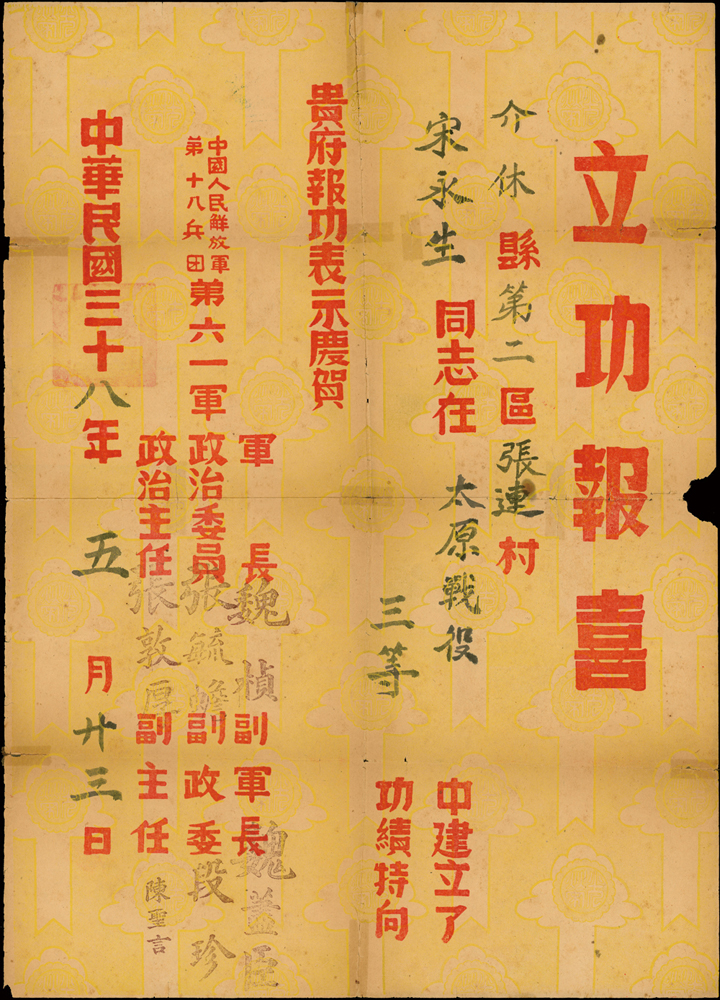 立功報喜
介休縣第二區張連村
宋永生同志在太原戰役中建立了
三等功績特向
貴府報功表示慶賀
中國人民解放軍
第十八兵团
第六一軍
軍長魏楨副軍長魏蓋臣
政治委員張毓蟾副政委段珍
政治主任張敦厚副主任陳聖言
中華民國三十八年五月廿三日